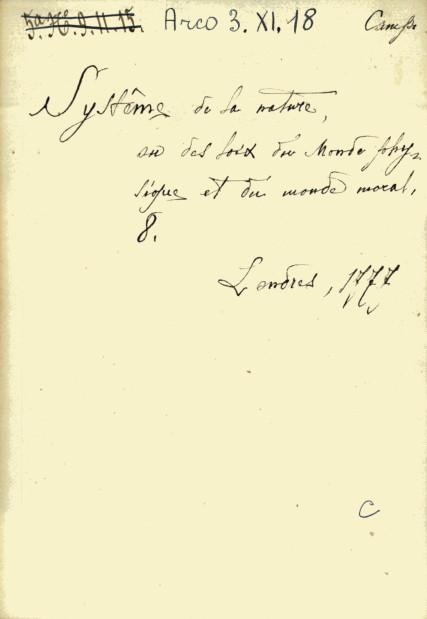 5ª H. 9. 11. 15. Arco 3. XI. 18
Système de la nature,
ou des loix du Monde phy-
sique et du monde moral.
8.
Londres, 1777
C